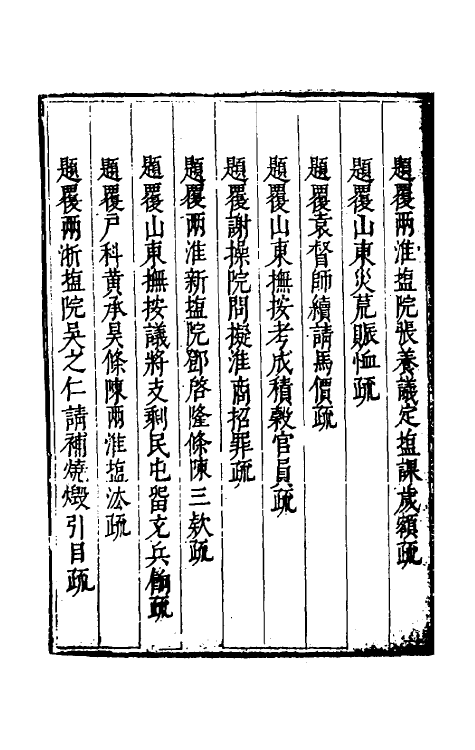 題覆兩淮塩院張養議定塩課歲額疏
題覆山東災荒賑恤疏
題覆袁督師續請馬價疏
題覆山東撫按考成積穀官員疏
題覆謝操院問擬淮商招罪疏
題覆兩淮新塩院鄧啓隆條陳三欵疏
題覆山東撫按議將支剩民屯留充兵餉疏
題覆戶科黃承昊條陳兩淮塩法疏
題覆兩浙塩院吴之仁請補燒燬引目疏